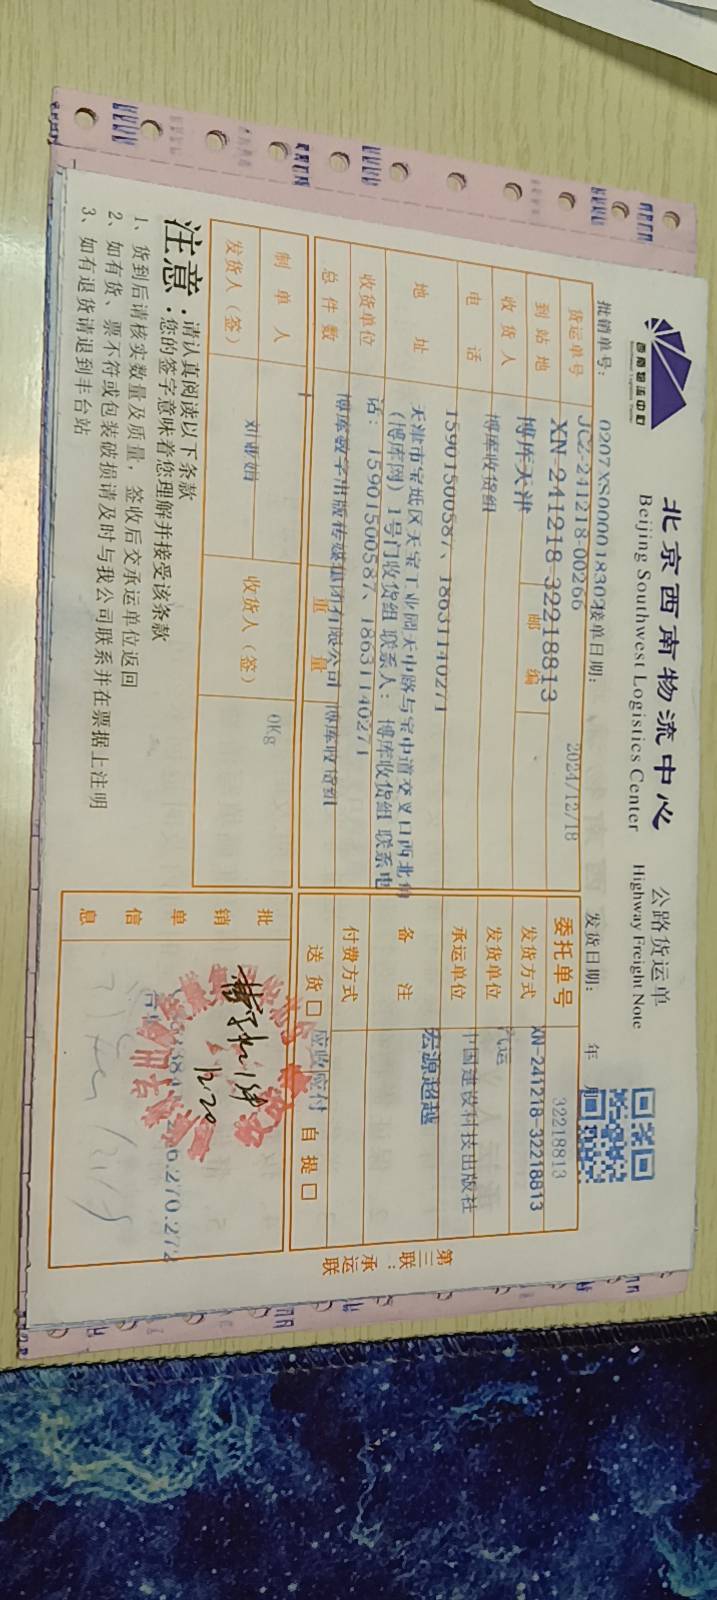 西南物流中心
北京西南物流中心 公路货运单
Beijing Southwest Logistics Center Highway Freight Note
批销单号: 0207XS000018302 接单日期: 2024/12/18 发货日期: 年 月
JCZ-241218-00266
货运单号 XN-241218-32218813 委托单号 32218813
XN-241218-32218813
到站地 博库天津 邮编 发货方式 汽运
收货人 博库收货组 发货单位 中国建设科技出版社
电话 15901500587、18631140271 承运单位 宏源超越
地址 天津市宝坻区天宝工业园天中路与宝中道交叉口西北角 备注
(博库网)1号门收货组 联系人: 博库收货组 联系电
话: 15901500587、18631140271
收货单位 博库数字出版传媒集团有限公司 博库收货组 付费方式 应收应付
总件数 1 重量 0Kg 送货□ 自提□
制单人 刘亚娟 收货人(签)
发货人(签)
批销单信息
注意
·请认真阅读以下条款
·您的签字意味着您理解并接受该条款
1、货到后请核实数量及质量,签收后交承运单位返回
2、如有货、票不符或包装破损请及时与我公司联系并在票据上注明
3、如有退货请退到丰台站
12.20
第三联:承运联